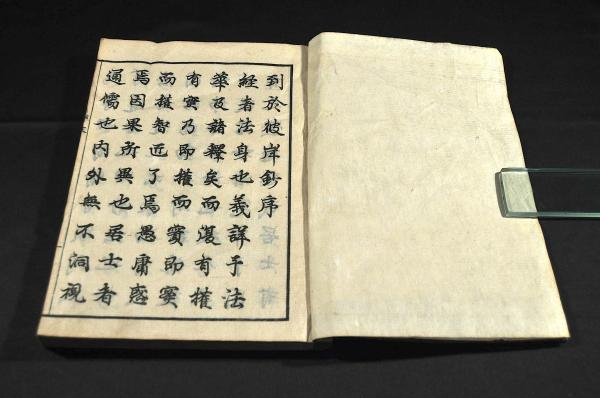 到於彼岸鈔序
經者法身也義詳于法
華及諸釋矣而復有權
有實乃即權而實即實
而權智近了焉愚庸惑
焉因果所異也居士者
通儒也內外無不洞視